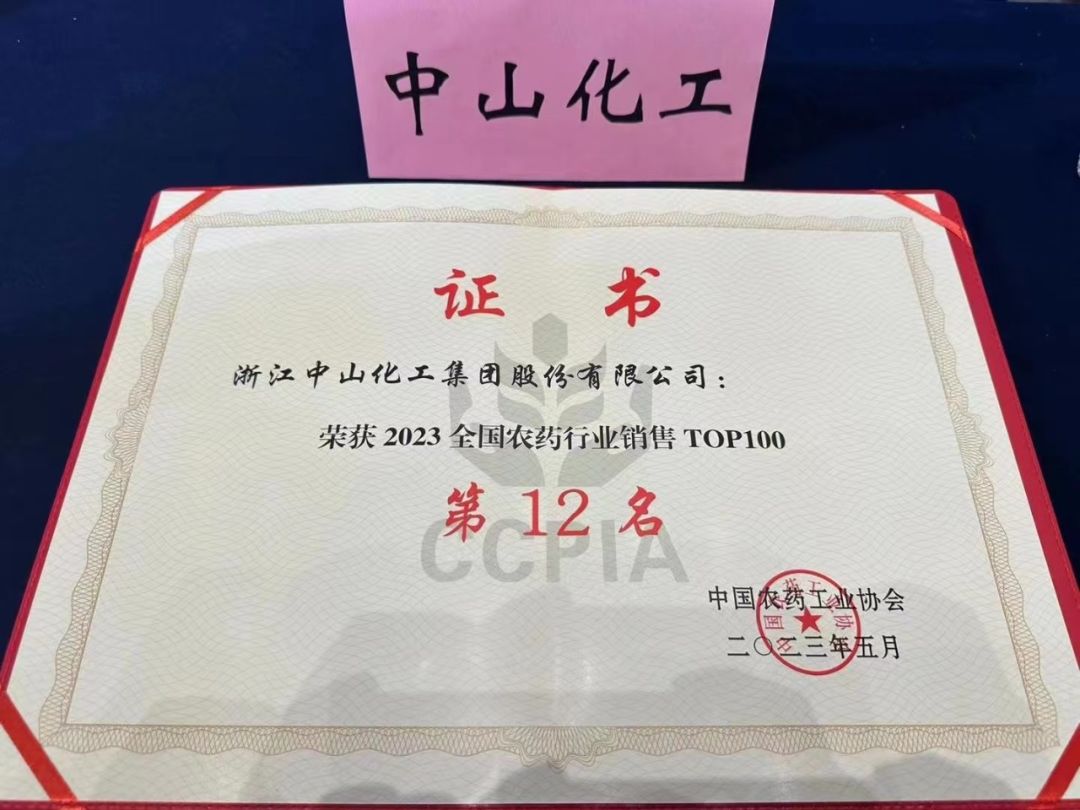 中山化工
证书
浙江中山化工集团股份有限公司：
荣获 2023 全国农药行业销售 TOP100
第 12 名
CCPIA
中国农药工业协会
二〇二三年五月
中国农药工业协会